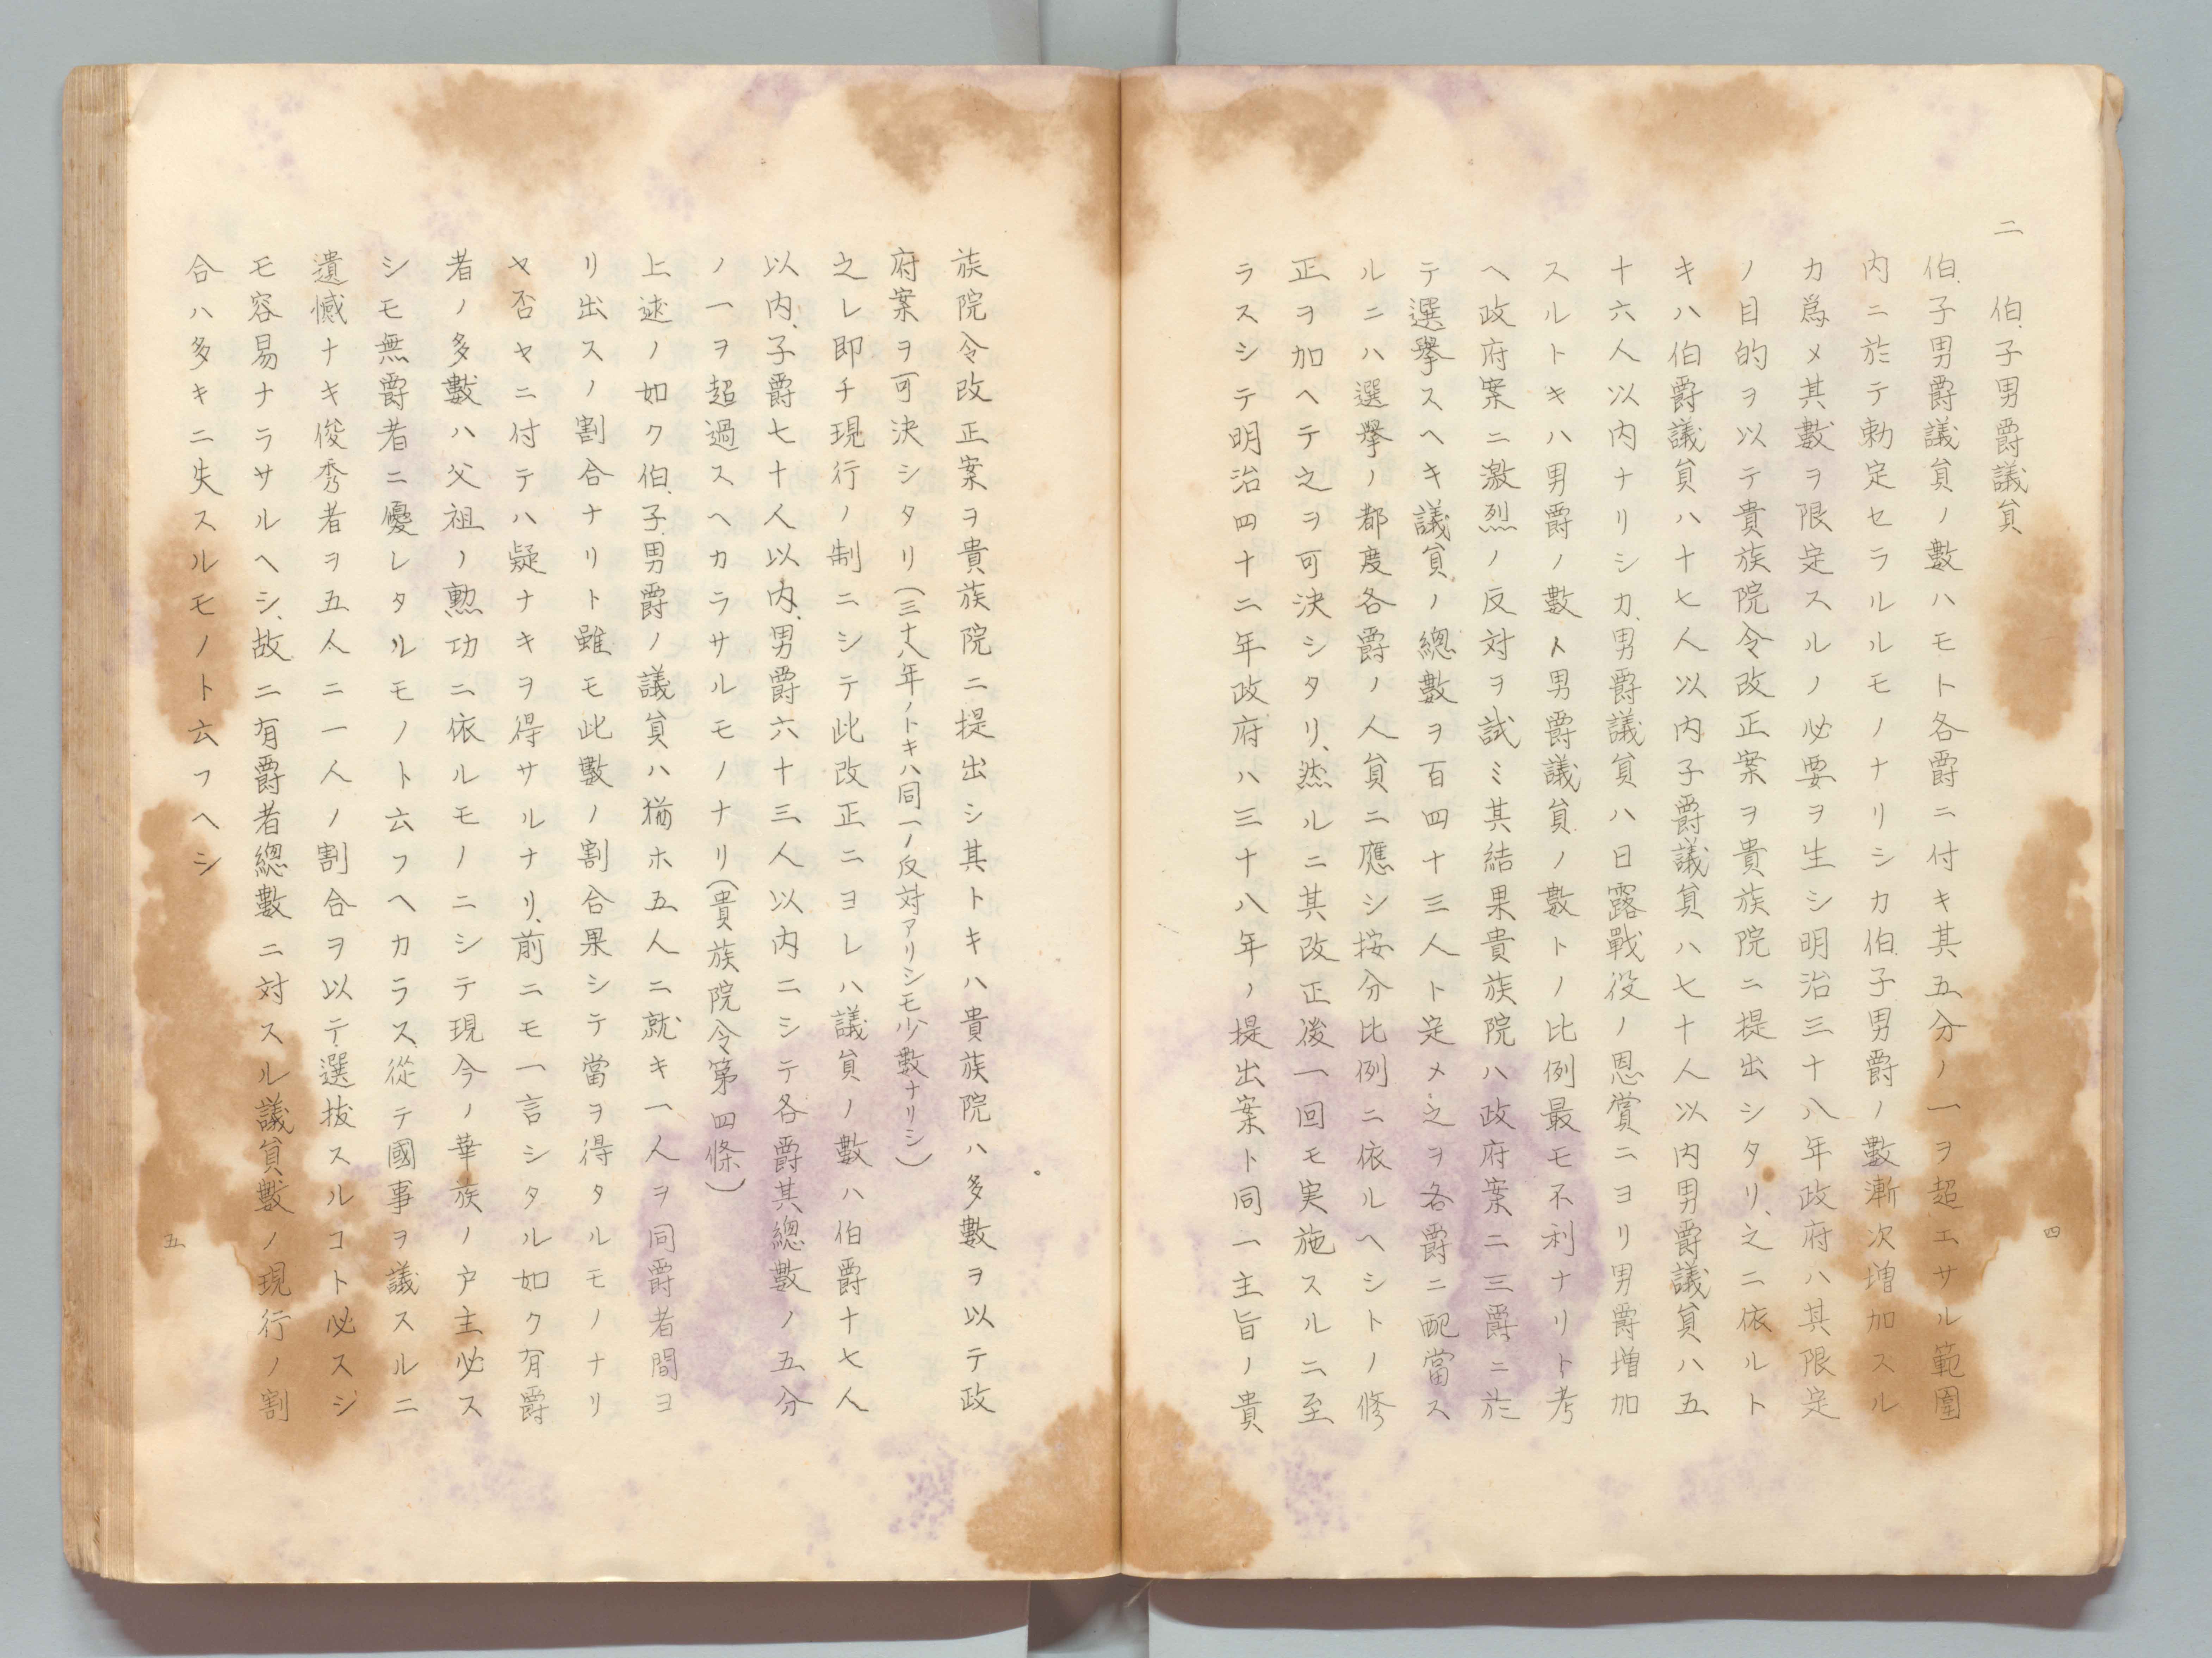 二　伯、子男爵議員
伯、子男爵議員ノ數ハモト各爵ニ付キ其五分ノ一ヲ超エサル範圍
内ニ於テ勅定セラルルモノナリシカ伯、子男爵ノ數漸次増加スル
カ爲メ其數ヲ限定スルノ必要ヲ生シ明治三十八年政府ハ其限定
ノ目的ヲ以テ貴族院令改正案ヲ貴族院ニ提出シタリ、之ニ依ルト
キハ伯爵議員ハ十七人以内子爵議員ハ七十人以内男爵議員ハ五
十六人以内ナリシカ、男爵議員ハ日露戰役ノ恩賞ニヨリ男爵増加
スルトキハ男爵ノ數ト男爵議員ノ數トノ比例最モ不利ナリト考
ヘ政府案ニ激烈ノ反対ヲ試ミ其結果貴族院ハ政府案ニ三爵ニ於
テ選擧スヘキ議員ノ總數ヲ百四十三人ト定メ之ヲ各爵ニ配當ス
ルニハ選擧ノ都度各爵ノ人員ニ應シ按分比例ニ依ルヘシトノ修
正ヲ加ヘテ之ヲ可決シタリ、然ルニ其改正後一回モ実施スルニ至
ラスシテ明治四十二年政府ハ三十八年ノ提出案ト同一主旨ノ貴
四
族院令改正案ヲ貴族院ニ提出シ其トキハ貴族院ハ多數ヲ以テ政
府案ヲ可決シタリ（三十八年ノトキハ同一ノ反対アリシモ少數ナリシ）
之レ即チ現行ノ制ニシテ此改正ニヨレハ議員ノ數ハ伯爵十七人
以内、子爵七十人以内、男爵六十三人以内ニシテ各爵其總數ノ五分
ノ一ヲ超過スヘカラサルモノナリ（貴族院令第四條）
上述ノ如ク伯、子、男爵ノ議員ハ猶ホ五人ニ就キ一人ヲ同爵者間ヨ
リ出スノ割合ナリト雖モ此數ノ割合果シテ當ヲ得タルモノナリ
ヤ否ヤニ付テハ疑ナキヲ得サルナリ、前ニモ一言シタル如ク有爵
者ノ多數ハ父祖ノ勲功ニ依ルモノニシテ現今ノ華族ノ戸主必ス
シモ無爵者ニ優レタルモノト云フヘカラス、從テ國事ヲ議スルニ
遺憾ナキ俊秀者ヲ五人ニ一人ノ割合ヲ以テ選拔スルコト必スシ
モ容易ナラサルヘシ、故ニ有爵者總數ニ対スル議員數ノ現行ノ割
合ハ多キニ失スルモノト云フヘシ
五